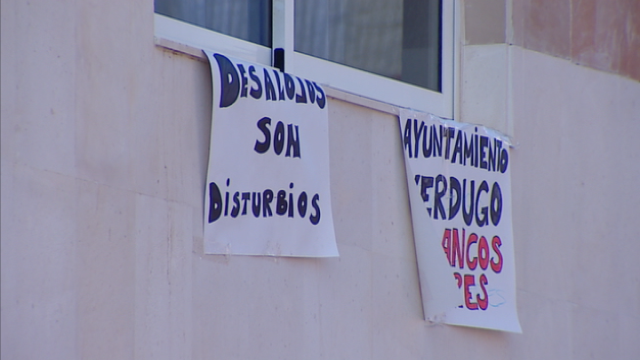 DESALOJOS
SON
DISTURBIOS
AYUNTAMIENTO
VERDUGO
ANCOS
ES